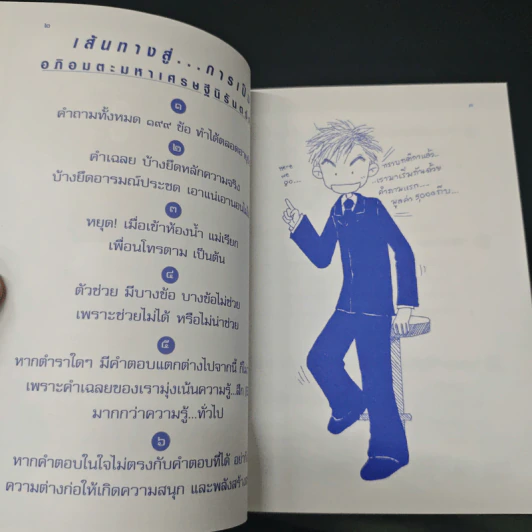 ๒
เส้นทางสู่...การเป็น
อภิอมตะมหาเศรษฐีนิรันดร์
๑
คำถามทั้งหมด ๑๙๙ ข้อ ทำได้ตลอด
๒
คำเฉลย บ้างยึดหลักความจริง
บ้างยึดอารมณ์ประชด เอาแน่เอานอน
๓
หยุด! เมื่อเข้าห้องน้ำ แม่เรียก
เพื่อนโทรตาม เป็นต้น
๔
ตัวช่วย มีบางข้อ บางข้อไม่ช่วย
เพราะช่วยไม่ได้ หรือไม่น่าช่วย
๕
หากตำราใดๆ มีคำตอบแตกต่างไปจากนี้
เพราะคำเฉลยของเรามุ่งเน้นความรู้...สึก
มากกว่าความรู้...ทั่วไป
๖
หากคำตอบในใจไม่ตรงกับคำตอบที่ได้
ความต่างก่อให้เกิดความสนุก และพลังสร้าง
๓
here
we
go...
ทราบกติกาแล้ว
เรามาเริ่มกันด้วย
คำถามแรก...